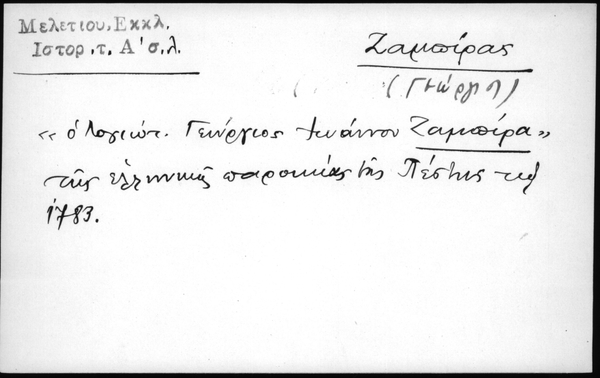 Μελετιου, Εκκλ.
Ιστορ. τ. Α' σ. λ.
Ζαμπίρας
(Γεώργιος)
« ὁ λογιώτ. Γεώργιος Ἰωάννου Ζαμπίρα »
τῆς ἑλληνικῆς παροικίας τῆς Πέστης τῷ
1783.